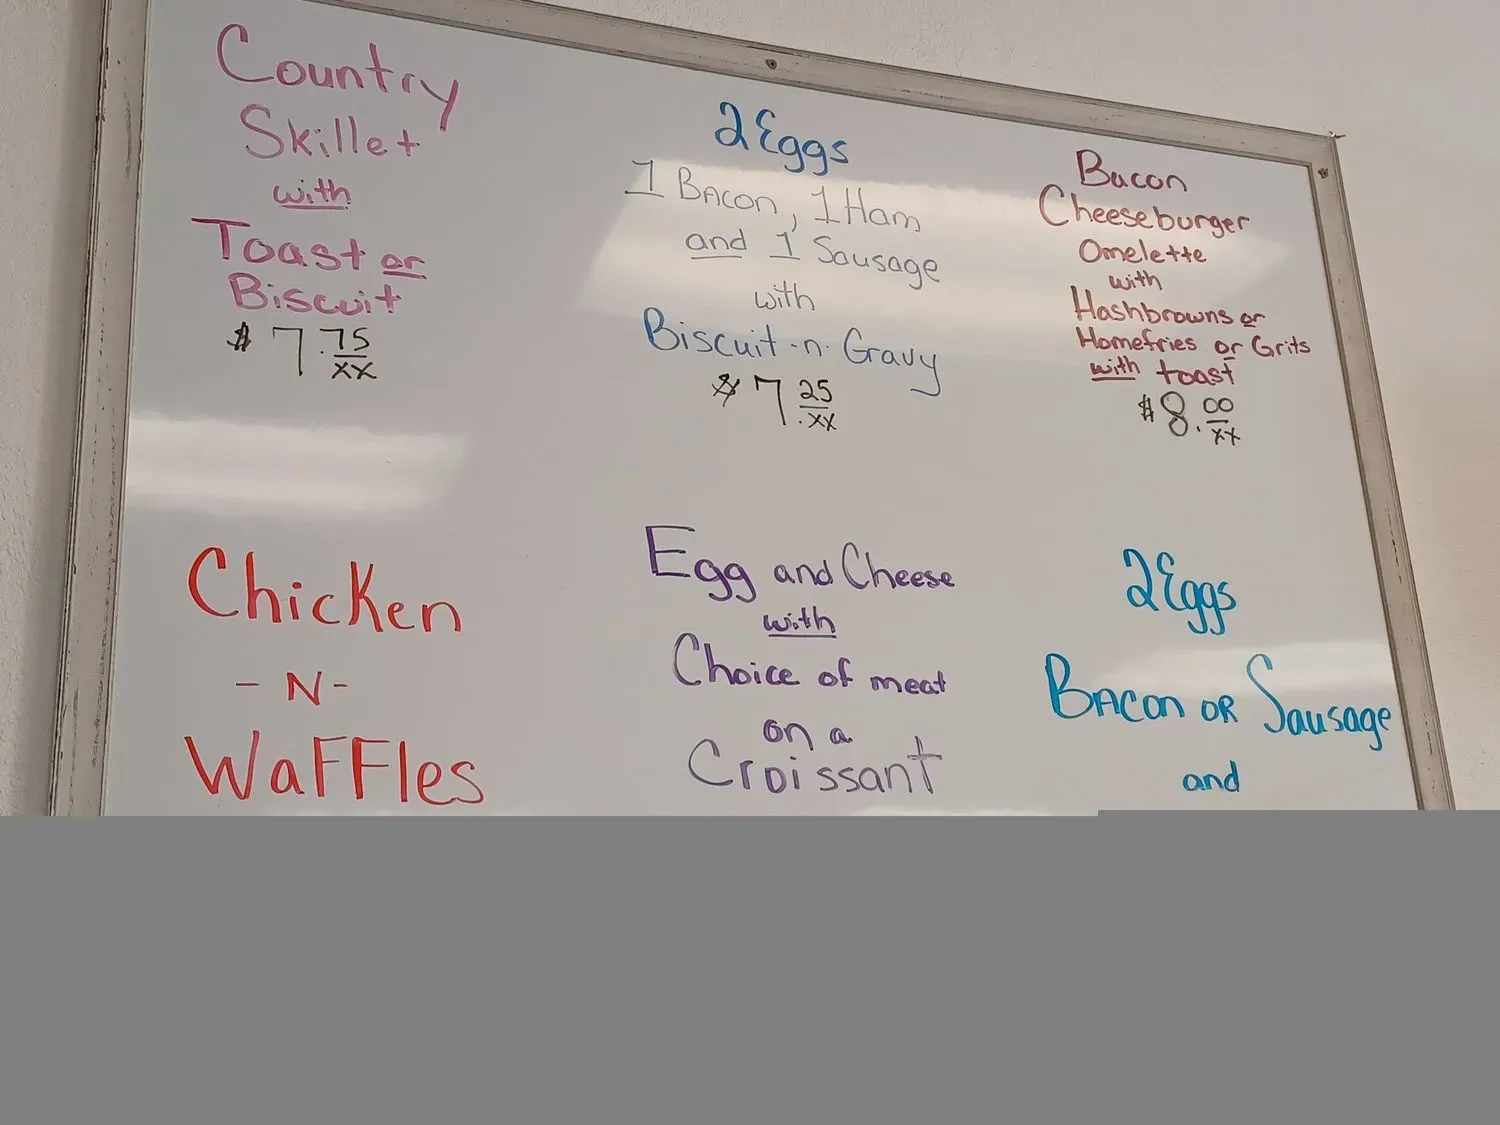 Country
Skillet
with
Toast or
Biscuit
$7.75/xx
2 Eggs
1 Bacon, 1 Ham
and 1 Sausage
with
Biscuit-n-Gravy
$7.25/xx
Bacon
Cheeseburger
Omelette
with
Hashbrowns or
Homefries or Grits
with toast
$8.00/xx
Chicken
-N-
Waffles
Egg and Cheese
with
Choice of meat
on a
Croissant
2 Eggs
Bacon or Sausage
and